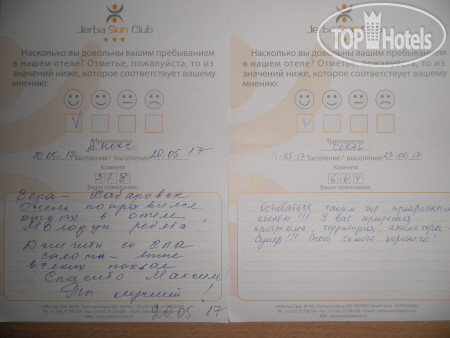 Jerba Sun Club
★★★
Насколько вы довольны вашим пребыванием
в нашем отеле? Отметье, пожалуйста, то из
значений ниже, которое соответствует вашему
мнению:
V
Туроператор
Анекс
10.05.17 Заселение/ выселение 20.05 17
Комната
3 1 8
Ваши пожелания:
Вера - Хабаровск
Очень понравился
отдых в отеле
Молодцы ребята!
Джамиля со СПА
салона - выше
всяких похвал
Спасибо Максим!
Ты лучший!
20.05 17
Jerba
TOP Hotels
Насколько вы довольны вашим пребыванием
в нашем отеле? Отметье, пожалуйста, то из
значений ниже, которое соответствует вашему
мнению:
V
Туроператор
CORAL
Заселение/ выселение
Комната
6 6 4
Ваши пожелания:
Оставайтесь таким же прекрасным
отелем!!! У вас прекрасная
программа, территория, аниматоры
Супер!!! Всего самого хорошего!